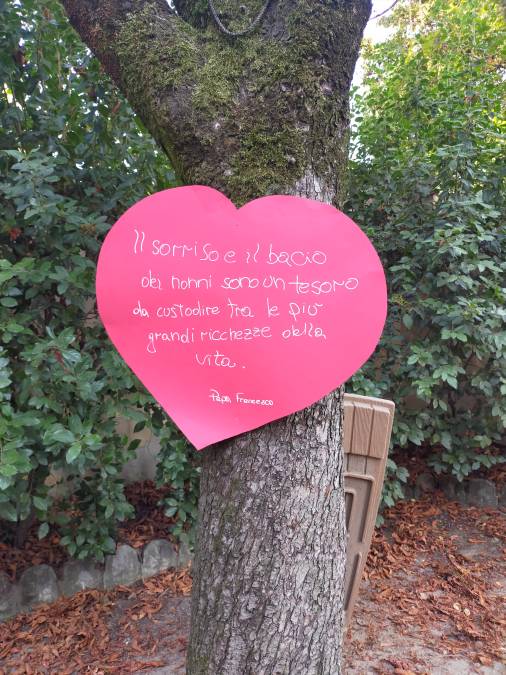 Il sorriso e il bacio
dei nonni sono un tesoro
da custodire tra le più
grandi ricchezze della
vita.
Papa Francesco